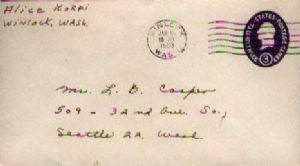 Alice Korpi
Winlock, Wash.
WINLOCK
WAS
UNITED STATES POSTAGE
3
Mrs. L. B. Cooper
509 - 32nd Ave. So.,
Seattle 22, Wash